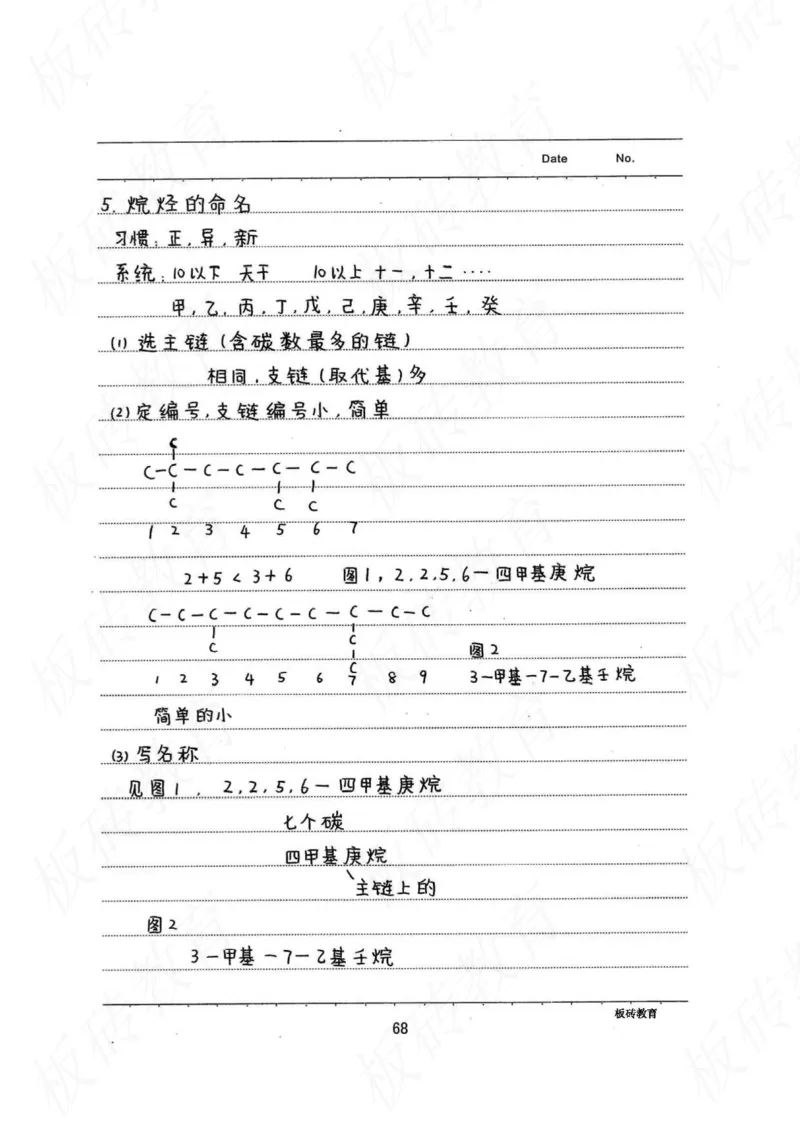 Date No.
5. 烷烃的命名
习惯: 正, 异, 新
系统: 10以下 天干 10以上 十一, 十二 ····
甲, 乙, 丙, 丁, 戊, 己, 庚, 辛, 壬, 癸
(1) 选主链 (含碳数最多的链)
相同, 支链 (取代基) 多
(2) 定编号, 支链编号小, 简单
C
C-C-C-C-C-C-C
C C C
1 2 3 4 5 6 7
2+5 < 3+6 图1, 2.2.5.6-四甲基庚烷
C-C-C-C-C-C-C-C-C
C C
图2
C
1 2 3 4 5 6 7 8 9 3-甲基-7-乙基壬烷
简单的小
(3) 写名称
见图1, 2,2,5,6-四甲基庚烷
七个碳
四甲基庚烷
主链上的
图2
3-甲基-7-乙基壬烷
板砖教育
68